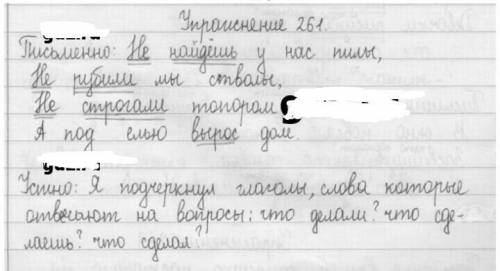 Упражнение 261.
Письменно: Не найдёшь у нас пилы,
Не рубили мы стволы,
Не строгали топором
А под елью вырос дом.
Устно: Я подчеркнул глаголы, слова которые
отвечают на вопросы: что делали? что сде-
лаешь? что сделал?